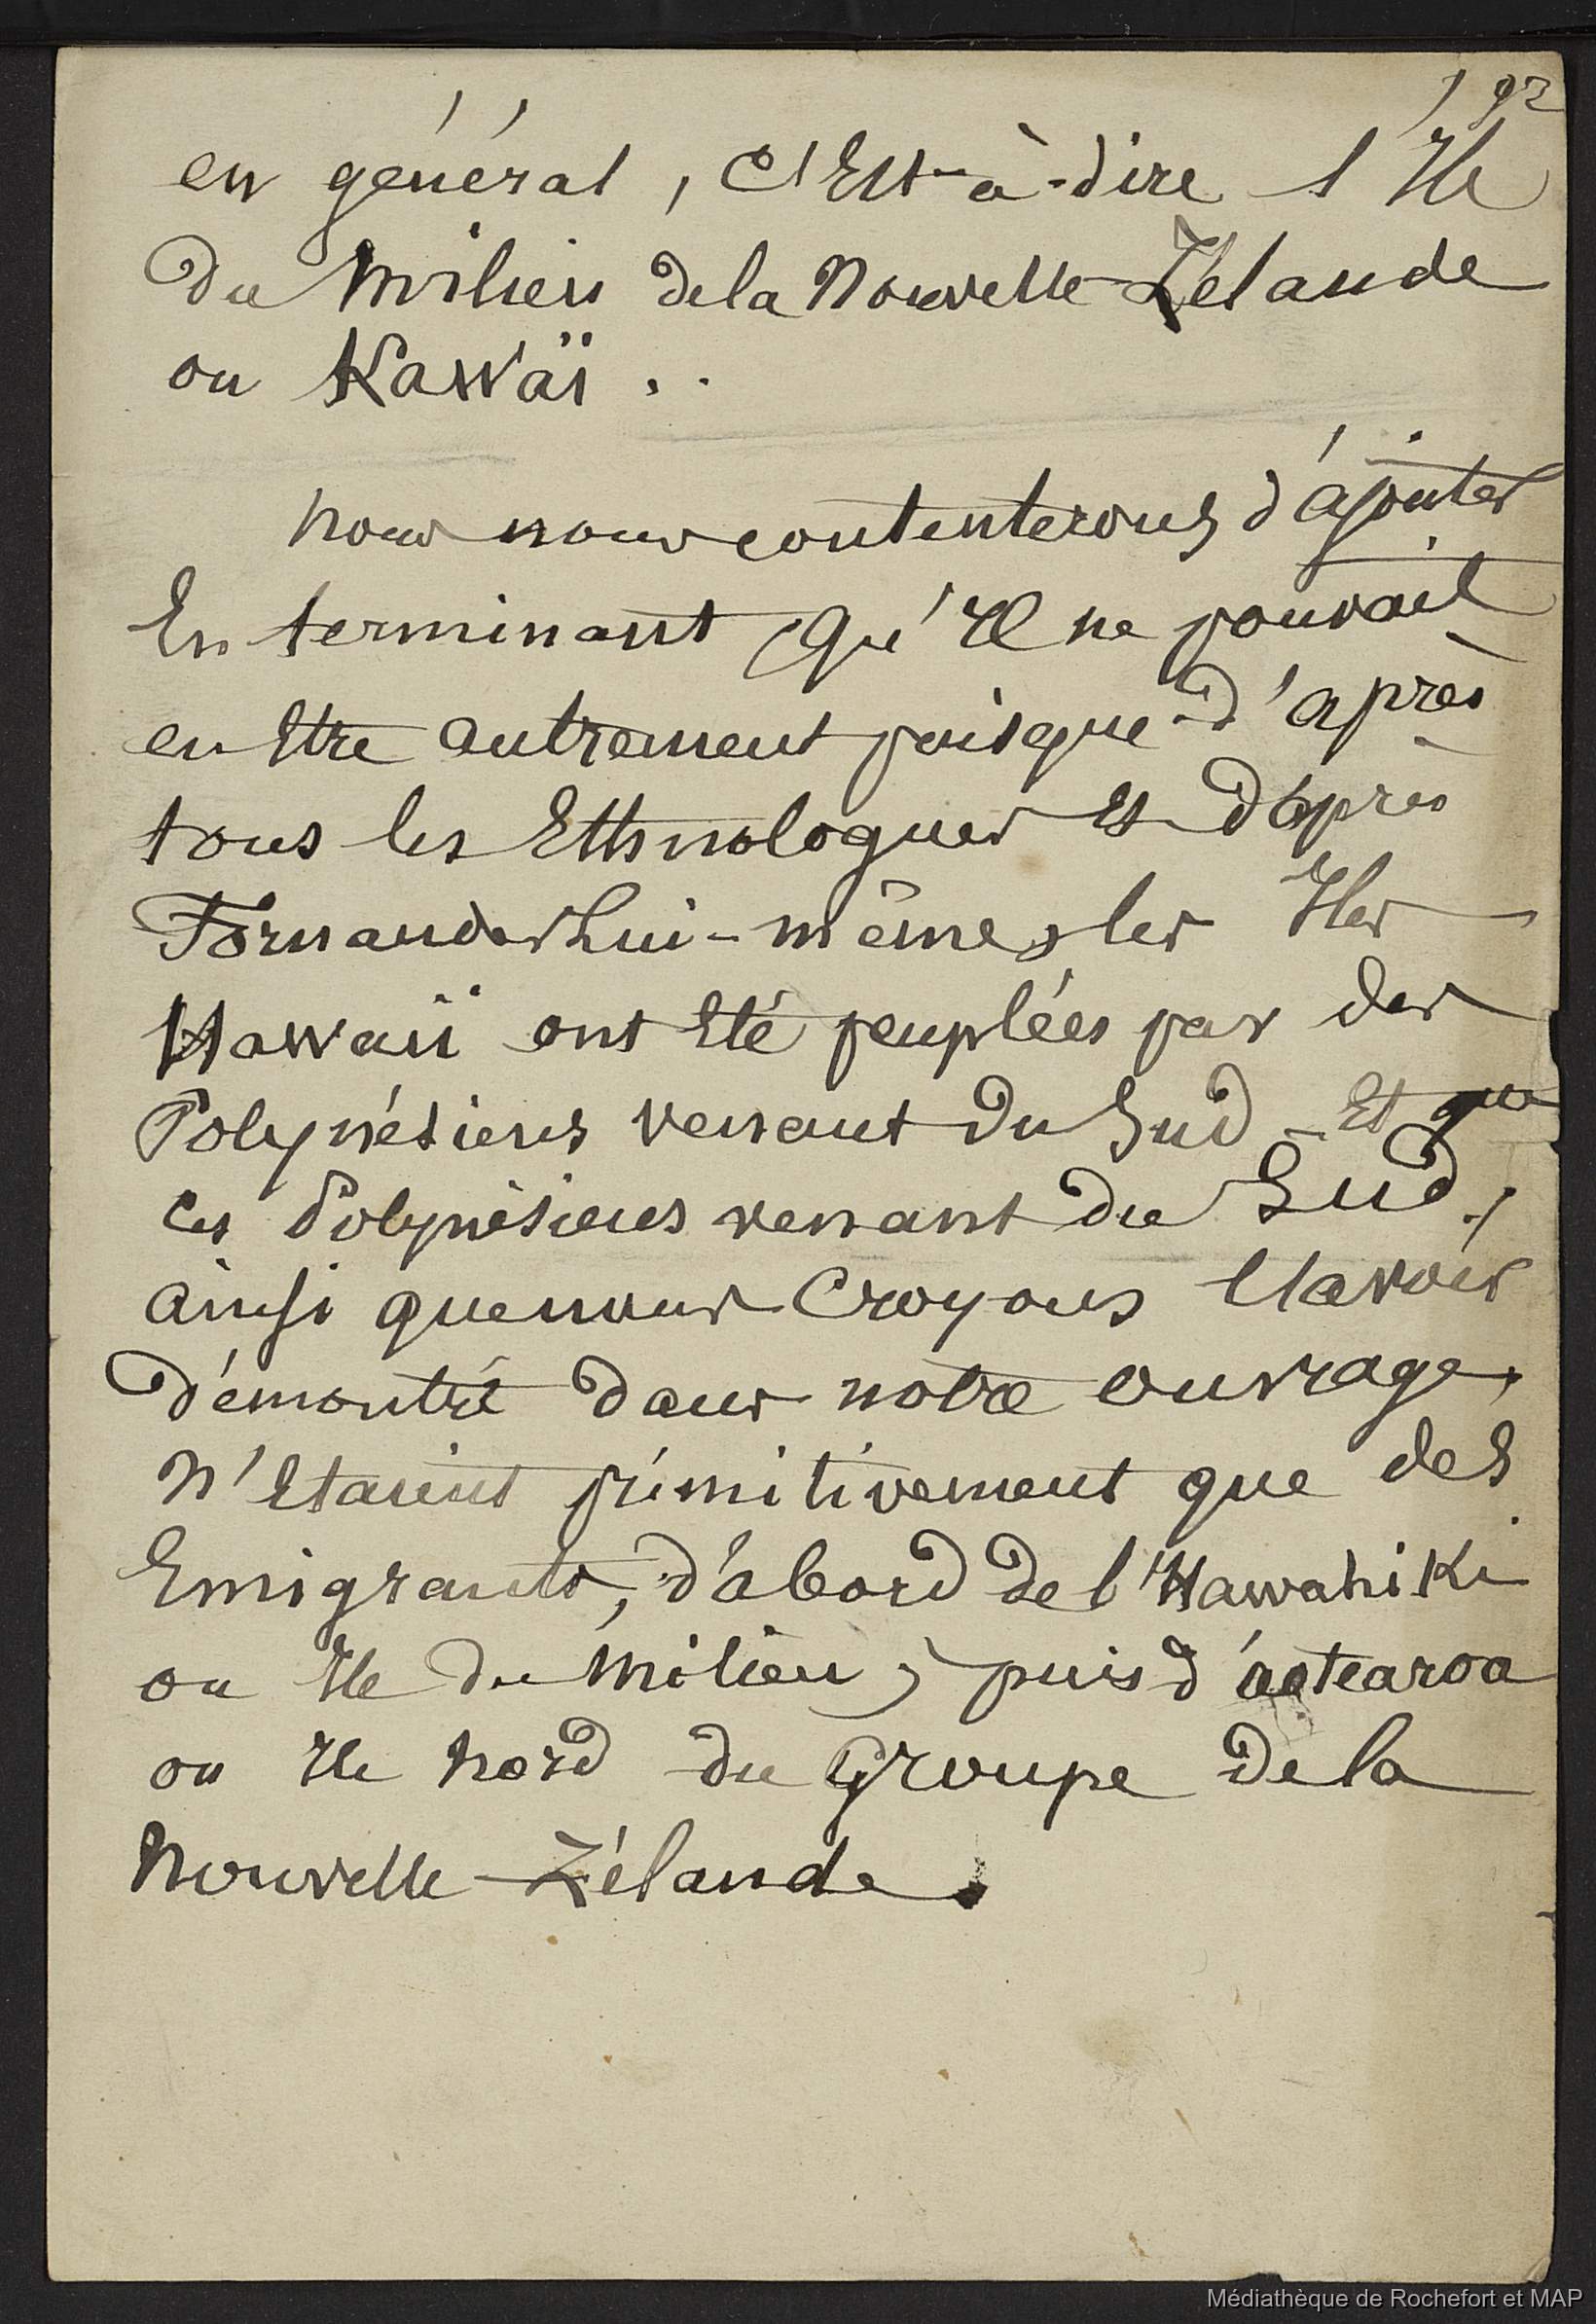 192
en général, c'Est-à-dire l'Ile
Du Milieu de la Nouvelle-Zélande
ou Kawaï..
Nous nous contenterons d'ajouter
En terminant qu'Il ne pouvait
en Etre autrement puisque d'après
tous les Ethnologues Et d'après
Fornander Lui-même, les Iles
Hawaii ont Eté peuplées par des
Polynésiens venant du Sud - Et que
ces Polynésiens venant du Sud,
ainsi que nous Croyons l'avoir
démontré dans notre ouvrage,
N'Etaient primitivement que des
Emigrants, d'abord de l'Hawahiki
ou Ile du Milieu, puis d'aotearoa
ou Ile Nord du Groupe de la
Nouvelle-Zélande.
Médiathèque de Rochefort et MAP